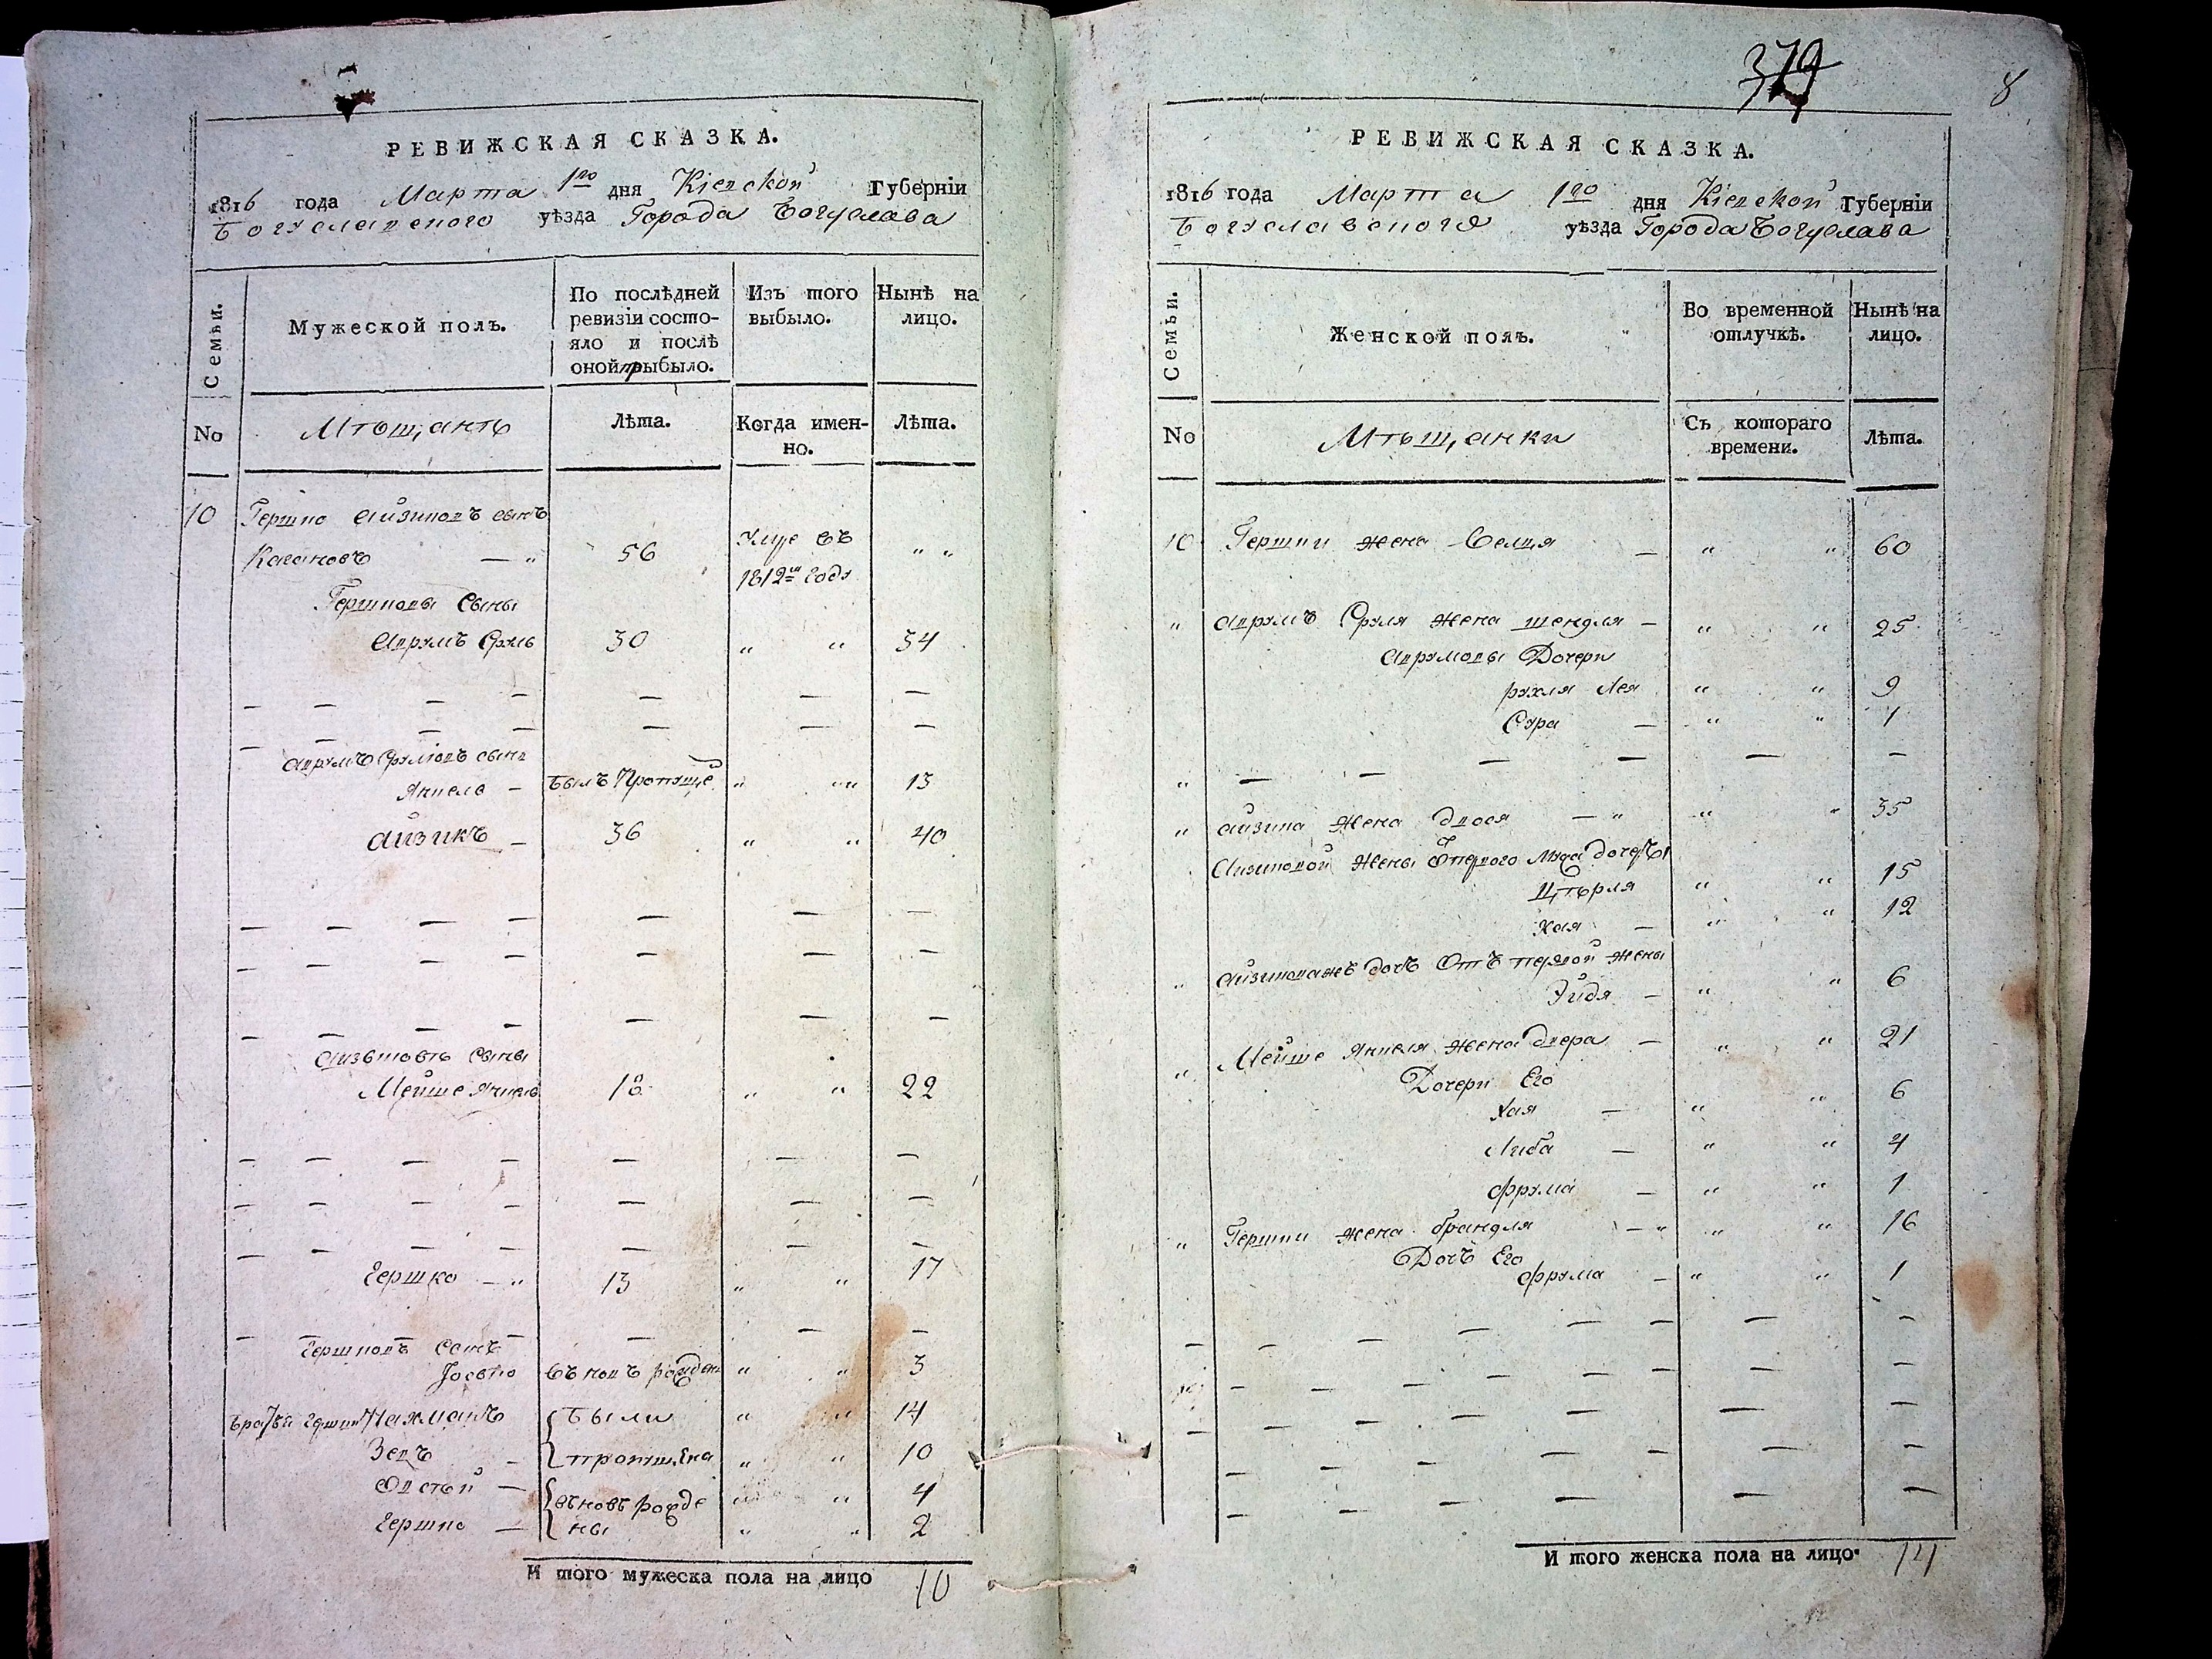 РЕВИЖСКАЯ СКАЗКА.
1816 года Марта 1го дня Кіевской Губерніи
Богуславского уѣзда Города Богуслава
Семьи.
Мужеской полъ.
По послѣдней ревизіи состояло и послѣ оной прыбыло.
Изъ того выбыло.
Нынѣ на лицо.
No
Мѣщанъ
Лѣта.
Когда именно.
Лѣта.
10 Гершко Айзиковъ сынъ
Кагановъ — „ 56 Умре въ 1812м году „ „
Гершковы Сыны
Аврумъ Сруль 30 „ „ 34
Аврумъ Срулювъ сынъ
Янкель — былъ Пропуще „ „ 13
Айзикъ — 36 „ „ 40
Сыны
Мейше Янкель 18 „ „ 22
Гершко — „ 13 „ „ 17
Гершковъ Сынъ
Іосько вновъ рожден „ „ 3
Нахманъ были „ „ 14
Зевъ — пропущена „ „ 10
Овсѣй — вновъ рожде „ „ 4
Гершко — ны „ „ 2
И того мужеска пола на лицо 10
379
8
РЕВИЖСКАЯ СКАЗКА.
1816 года Марта 1го дня Кіевской Губерніи
Богуславского уѣзда Города Богуслава
Семьи.
Женской полъ.
Во временной отлучкѣ.
Нынѣ на лицо.
No
Мѣщанки
Съ котораго времени.
Лѣта.
10 Гершки жена — „ „ 60
„ Аврумъ Сруля жена шендля — „ „ 25
Аврумовы Дочери
рухля Лея „ „ 9
Сура — „ „ 1
„ Айзика жена двося — „ „ „ 35
Айзиковой жены
Цѣрля „ „ 15
Хая — „ „ 12
„ дочъ Отъ первой жены
Эйдя — „ „ 6
„ Мейше Янкеля жена двера — „ „ 21
Дочери Его
Хая — „ „ 6
Либа — „ „ 4
Фрума — „ „ 1
„ Гершки жена брандля — „ „ „ 16
Дочъ Его
Фрума — „ „ 1
И того женска пола на лицо 14